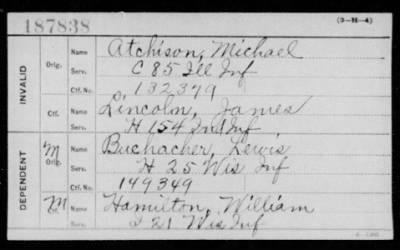 187838 (3-H-4)
INVALID Orig. Name Atchison, Michael
Serv. C 85 Ill Inf
Ctf. No. 132379
Ctf. Name Lincoln, James
Serv. H 154 Ind Inf
DEPENDENT M Orig. Name Buchacher, Lewis
Serv. H 25 Wis Inf
Ctf. No. 149349
M Ctf. Name Hamilton, William
Serv. I 21 Wis Inf